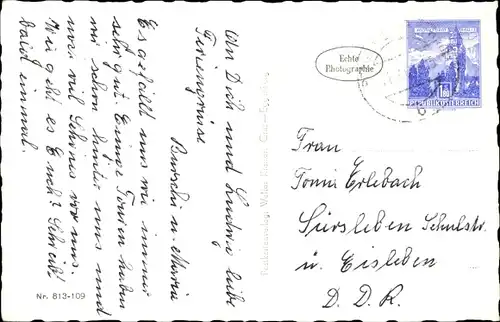 An Dich und Ludwig liebe
Feriengrüsse
Es gefällt uns wie immer
sehr gut. Einige Touren haben
wir schon hinter uns und
noch viel Schönes vor uns.
Wie geht es Euch? Schreibt
bald einmal.
Nr. 813-109
Echte
Photographie
REPUBLIK ÖSTERREICH
Frau
Erlebach
Siersleben Schulstr
ü. Eisleben
D. D. R.